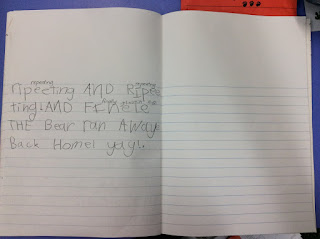 repeating repeating
ripeeting AND Ripee
ting AND
THE Bear ran Away
Back Home! yay!